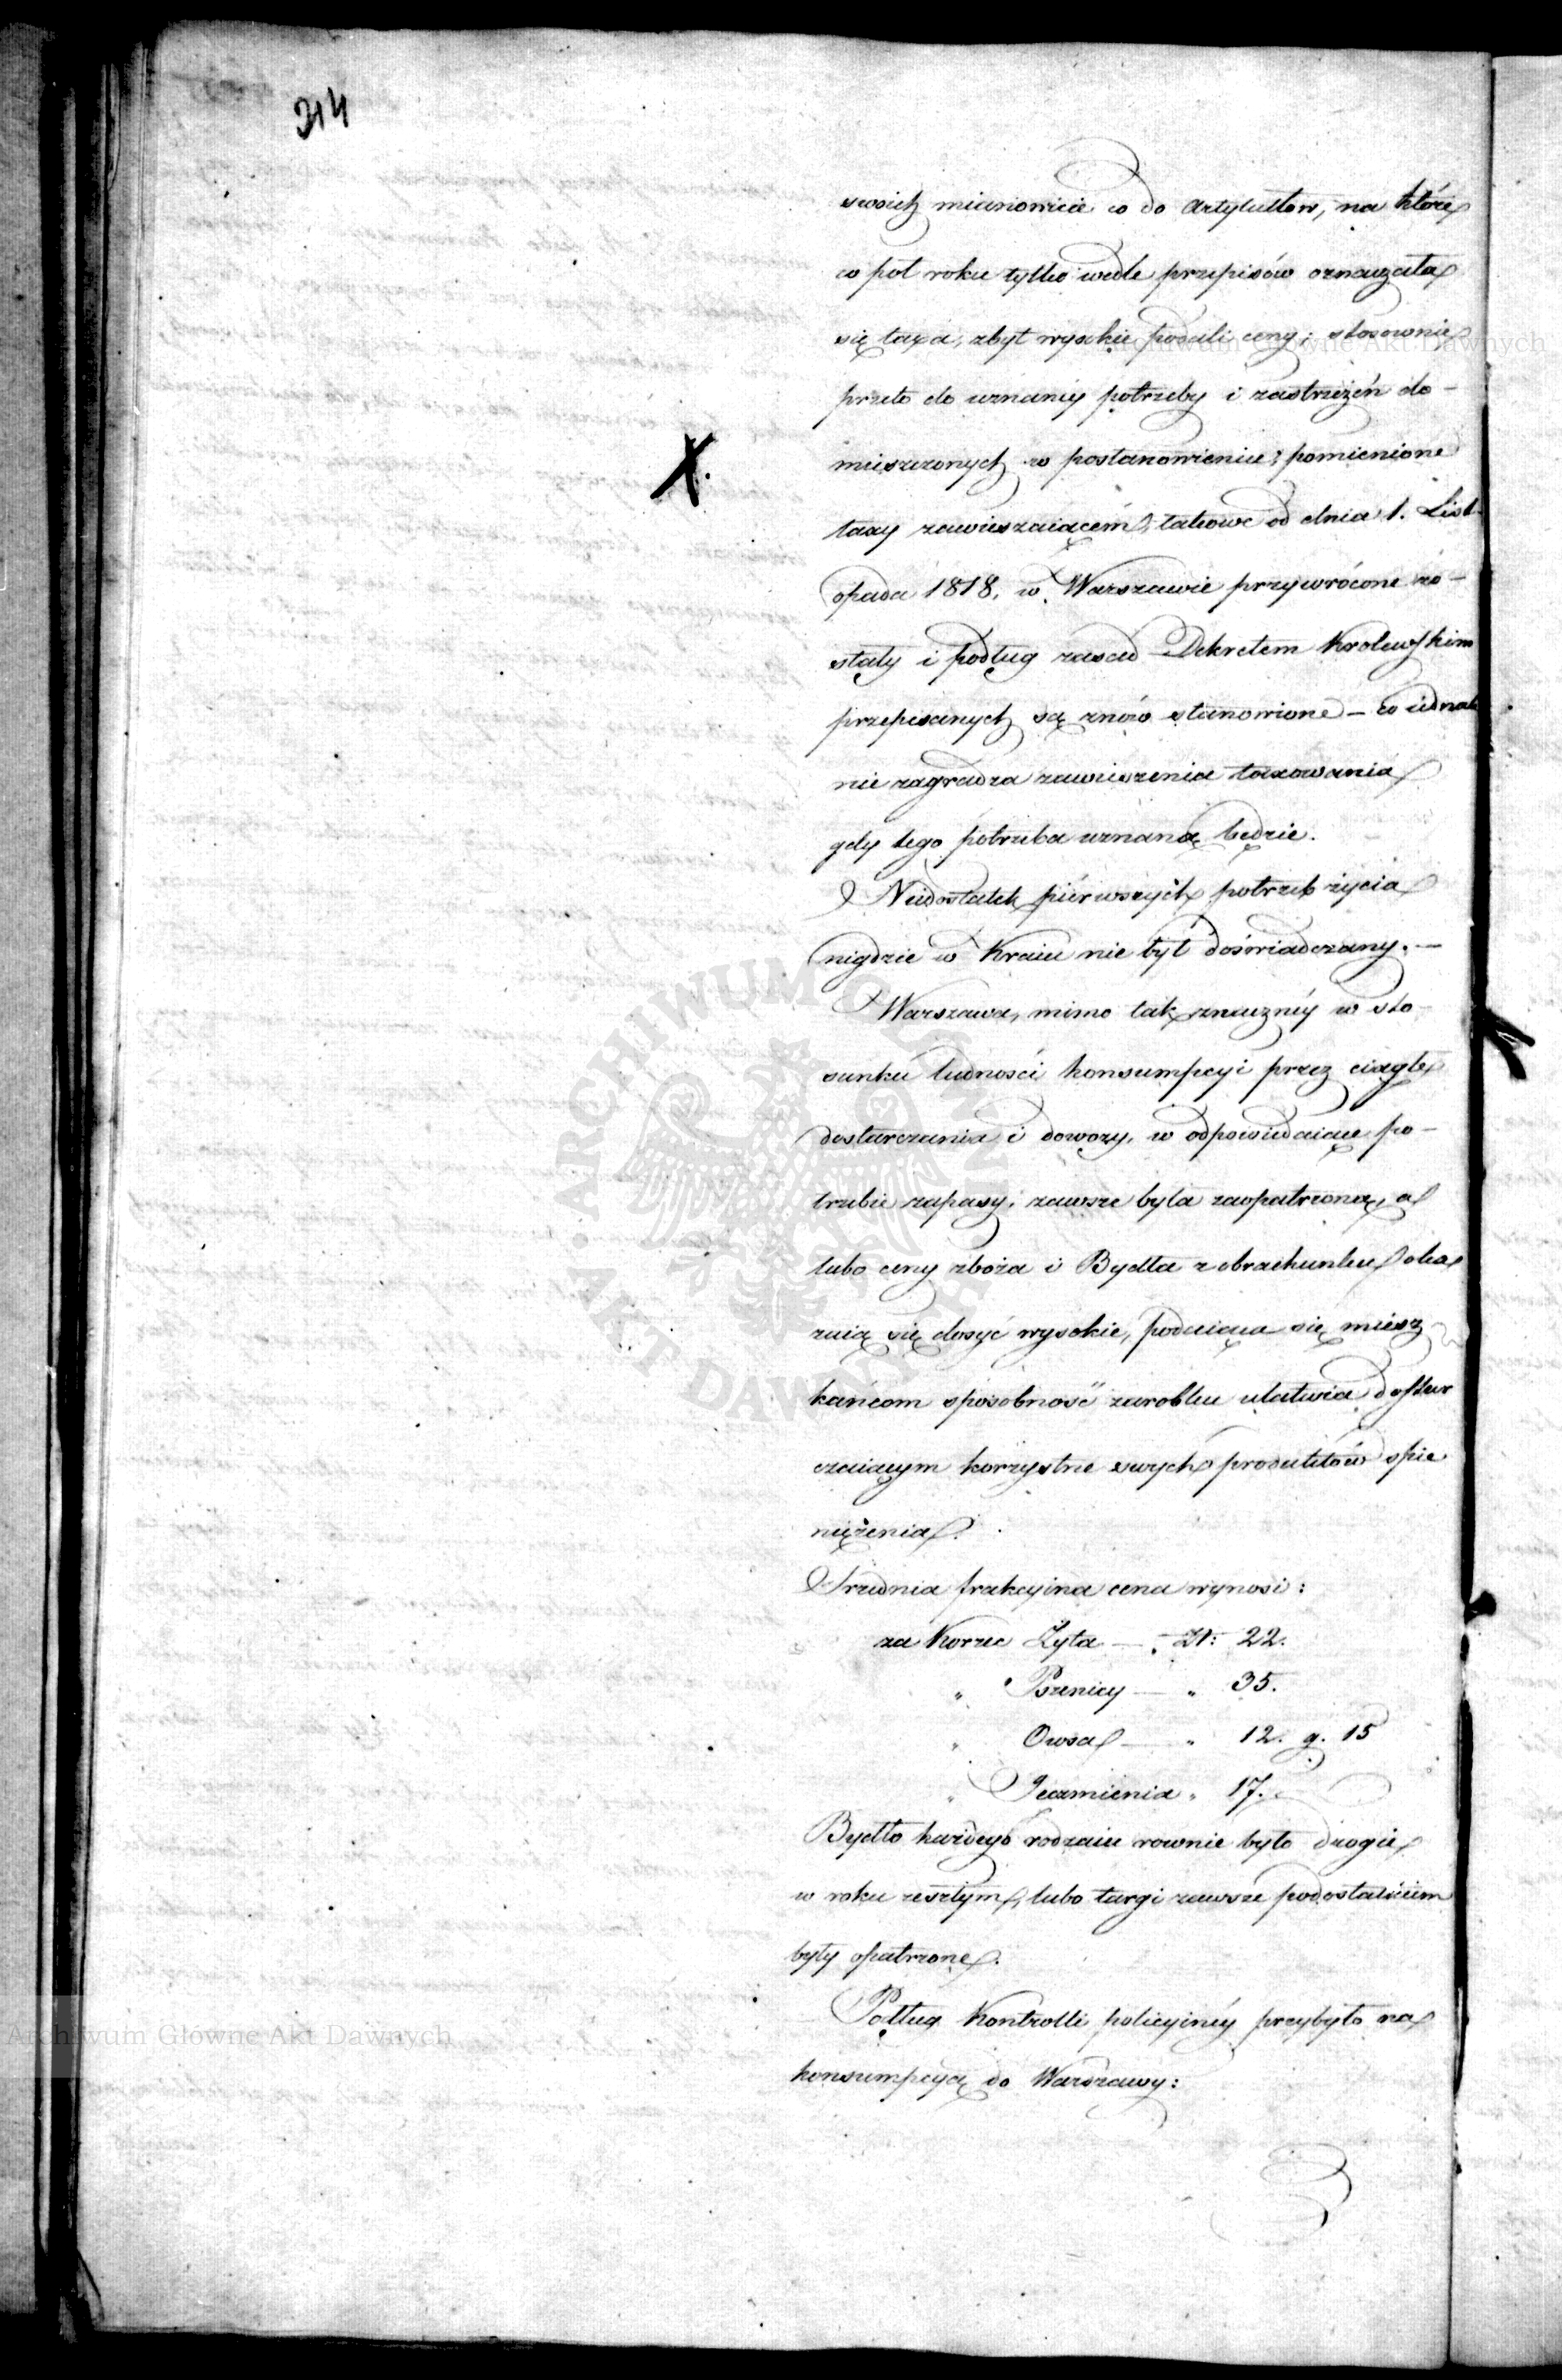 214
swoich mianowicie co do artykułłow, na które
co pół roku tylko wedle przepisów oznaczała
się taxa, zbyt wysokie podali ceny; stosownie
przeto do uznaney potrzeby i zastrzeżeń do-
mieszczonych w postanowieniu pomienione
taxy zawieszaiącém, takowe od dnia 1. List-
opada 1818. w Warszawie przywrócone zo-
stały i podług zasad Dekretem Królewskim
przepisanych są znów stanowione – co iednak
nie zagradza zawieszenia taxowania
gdy tego potrzeba uznaną będzie.
Niedostatek piérwszych potrzeb życia
nigdzie w Kraiu nie był doświadczany. –
Warszawa, mimo tak znaczney w sto-
sunku ludności konsumpcyi przez ciągłe
dostarczania i dowozy, w odpowiedaiące po-
trzebie zapasy, zawsze była zaopatrzona, a
lubo ceny zboża i Bydła z obrachunku oka-
zuią się dosyć wysokie, podaiąca się miesz-
kańcom sposobność zarobku ułatwia dostar
czaiącym korzystne swych produktów spie
niężenia.
Srzednia frakcyina cena wynosi:
za Korzec Żyta — Zł: 22.
" " Pszenicy — " 35.
" Owsa — " 12. g. 15
" Jęczmienia " 17.
Bydło każdego rodzaiu rownie było drogie
w roku zeszłym, lubo targi zawsze podostatkiem
były opatrzone.
Podług Kontrolli policyiney przybyło na
konsumpcyą do Warszawy:
X.
Archiwum Główne Akt Dawnych
ARCHIWUM GŁÓWNE AKT DAWNYCH
Archiwum Główne Akt Dawnych